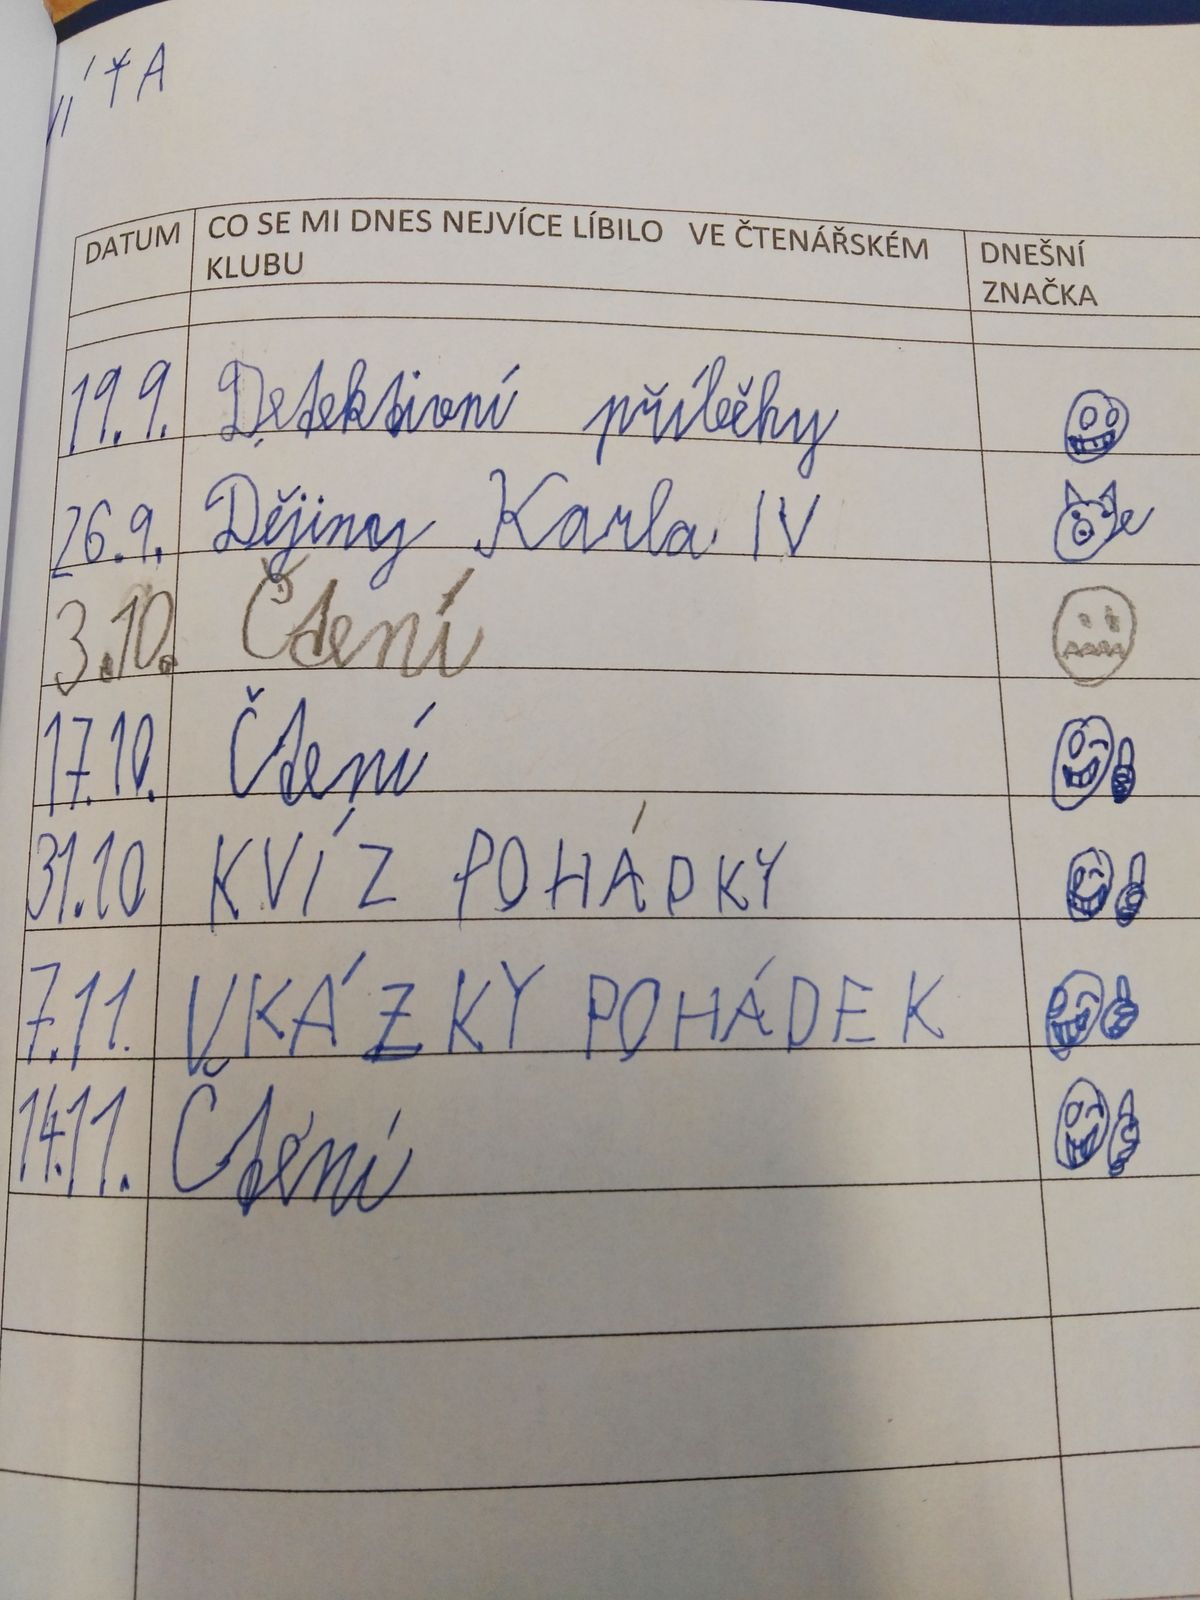 DATUM CO SE MI DNES NEJVÍCE LÍBILO VE ČTENÁŘSKÉM DNEŠNÍ
KLUBU ZNAČKA
19.9. Detektivní příběhy
26.9. Dějiny Karla IV
3.10. Čtení
17.10. Čtení
31.10 KVÍZ POHÁDKY
7.11. UKÁZKY POHÁDEK
14.11. Čtení